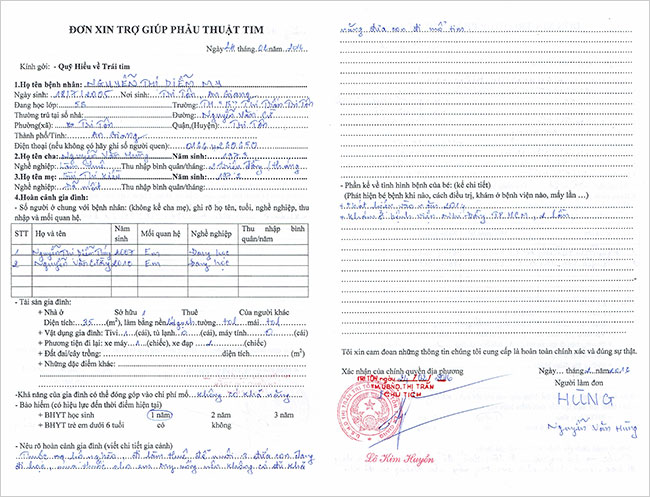 ĐƠN XIN TRỢ GIÚP PHẪU THUẬT TIM
Ngày 24 tháng 02 năm 2016
Kính gởi: - Quỹ Hiểu về Trái tim
1.Họ tên bệnh nhân: NGUYỄN THỊ DIỄM MY
Ngày sinh: 18/7/2005 Nơi sinh: Tri Tôn, An Giang
Đang học lớp: 5 Trường: TH "B" Thị Trấn Tri Tôn
Thường trú tại số nhà: Đường: Nguyễn Văn Cừ
Phường(xã): Tri Tôn Quận,(Huyện): Tri Tôn
Thành phố/Tỉnh: An Giang
Điện thoại (nếu không có hãy ghi số người quen):
2.Họ tên cha: Nguyễn Văn Hùng Năm sinh:
Nghề nghiệp: Làm thuê Thu nhập bình quân/tháng: triệu đồng / tháng
3.Họ tên mẹ: Năm sinh:
Nghề nghiệp: Thu nhập bình quân/tháng:
4.Hoàn cảnh gia đình:
- Số người ở chung với bệnh nhân: (không kể cha mẹ), ghi rõ họ tên, tuổi, nghề nghiệp, thu
nhập và mối quan hệ.
STT Họ và tên Năm sinh Mối quan hệ Nghề nghiệp Thu nhập bình quân/năm
1 Nguyễn Thị Diễm 2007 Em Đang học
2 Nguyễn Văn Em Đang học
- Tài sản gia đình:
+ Nhà ở Sở hữu 1 Thuê Của người khác
Diện tích: 35 (m²), làm bằng nền gạch tường tol mái tol
+ Vật dụng gia đình: Tivi 1 (cái), tủ lạnh 0 (cái), máy tính 0 (cái)
+ Phương tiện đi lại: xe máy 1 (chiếc), xe đạp (chiếc)
+ Đất đai/cây trồng: diện tích (m²)
+ Những đặc điểm khác:
-Khả năng của gia đình có thể đóng góp vào chi phí mổ không có khả năng
- Bảo hiểm (có hiệu lực đến thời điểm hiện tại)
+ BHYT học sinh 1 năm 2 năm 3 năm
+ BHYT trẻ em dưới 6 tuổi có không
- Nêu rõ hoàn cảnh gia đình (viết chi tiết gia cảnh)
Thuộc hộ nghèo, đi làm thuê để nuôi 3 đứa con đang
đi học, nên không có đủ khả
năng đưa con đi mổ tim
- Phần kể về tình hình bệnh của bé: (kể chi tiết)
(Phát hiện bệnh khi nào, cách điều trị, khám ở bệnh viện nào, mấy lần …)
Phát hiện vào năm 2014
khám ở bệnh viện Nhi Đồng TP.HCM, 2 lần
Tôi xin cam đoan những thông tin chúng tôi cung cấp là hoàn toàn chính xác và đúng sự thật.
Xác nhận của chính quyền địa phương
TRI TÔN, ngày
TM.UBND THỊ TRẤN
CHỦ TỊCH
Lê Kim Huyền
Người làm đơn
HÙNG
Nguyễn Văn Hùng